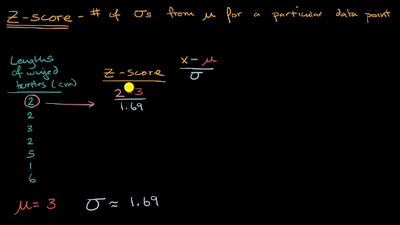 Z-score - # of σs from μ for a particular data point
Lengths
of winged
turtles (cm)
2
2
3
2
5
1
6
Z-score
2-3
1.69
x - μ
σ
μ = 3
σ ≈ 1.69